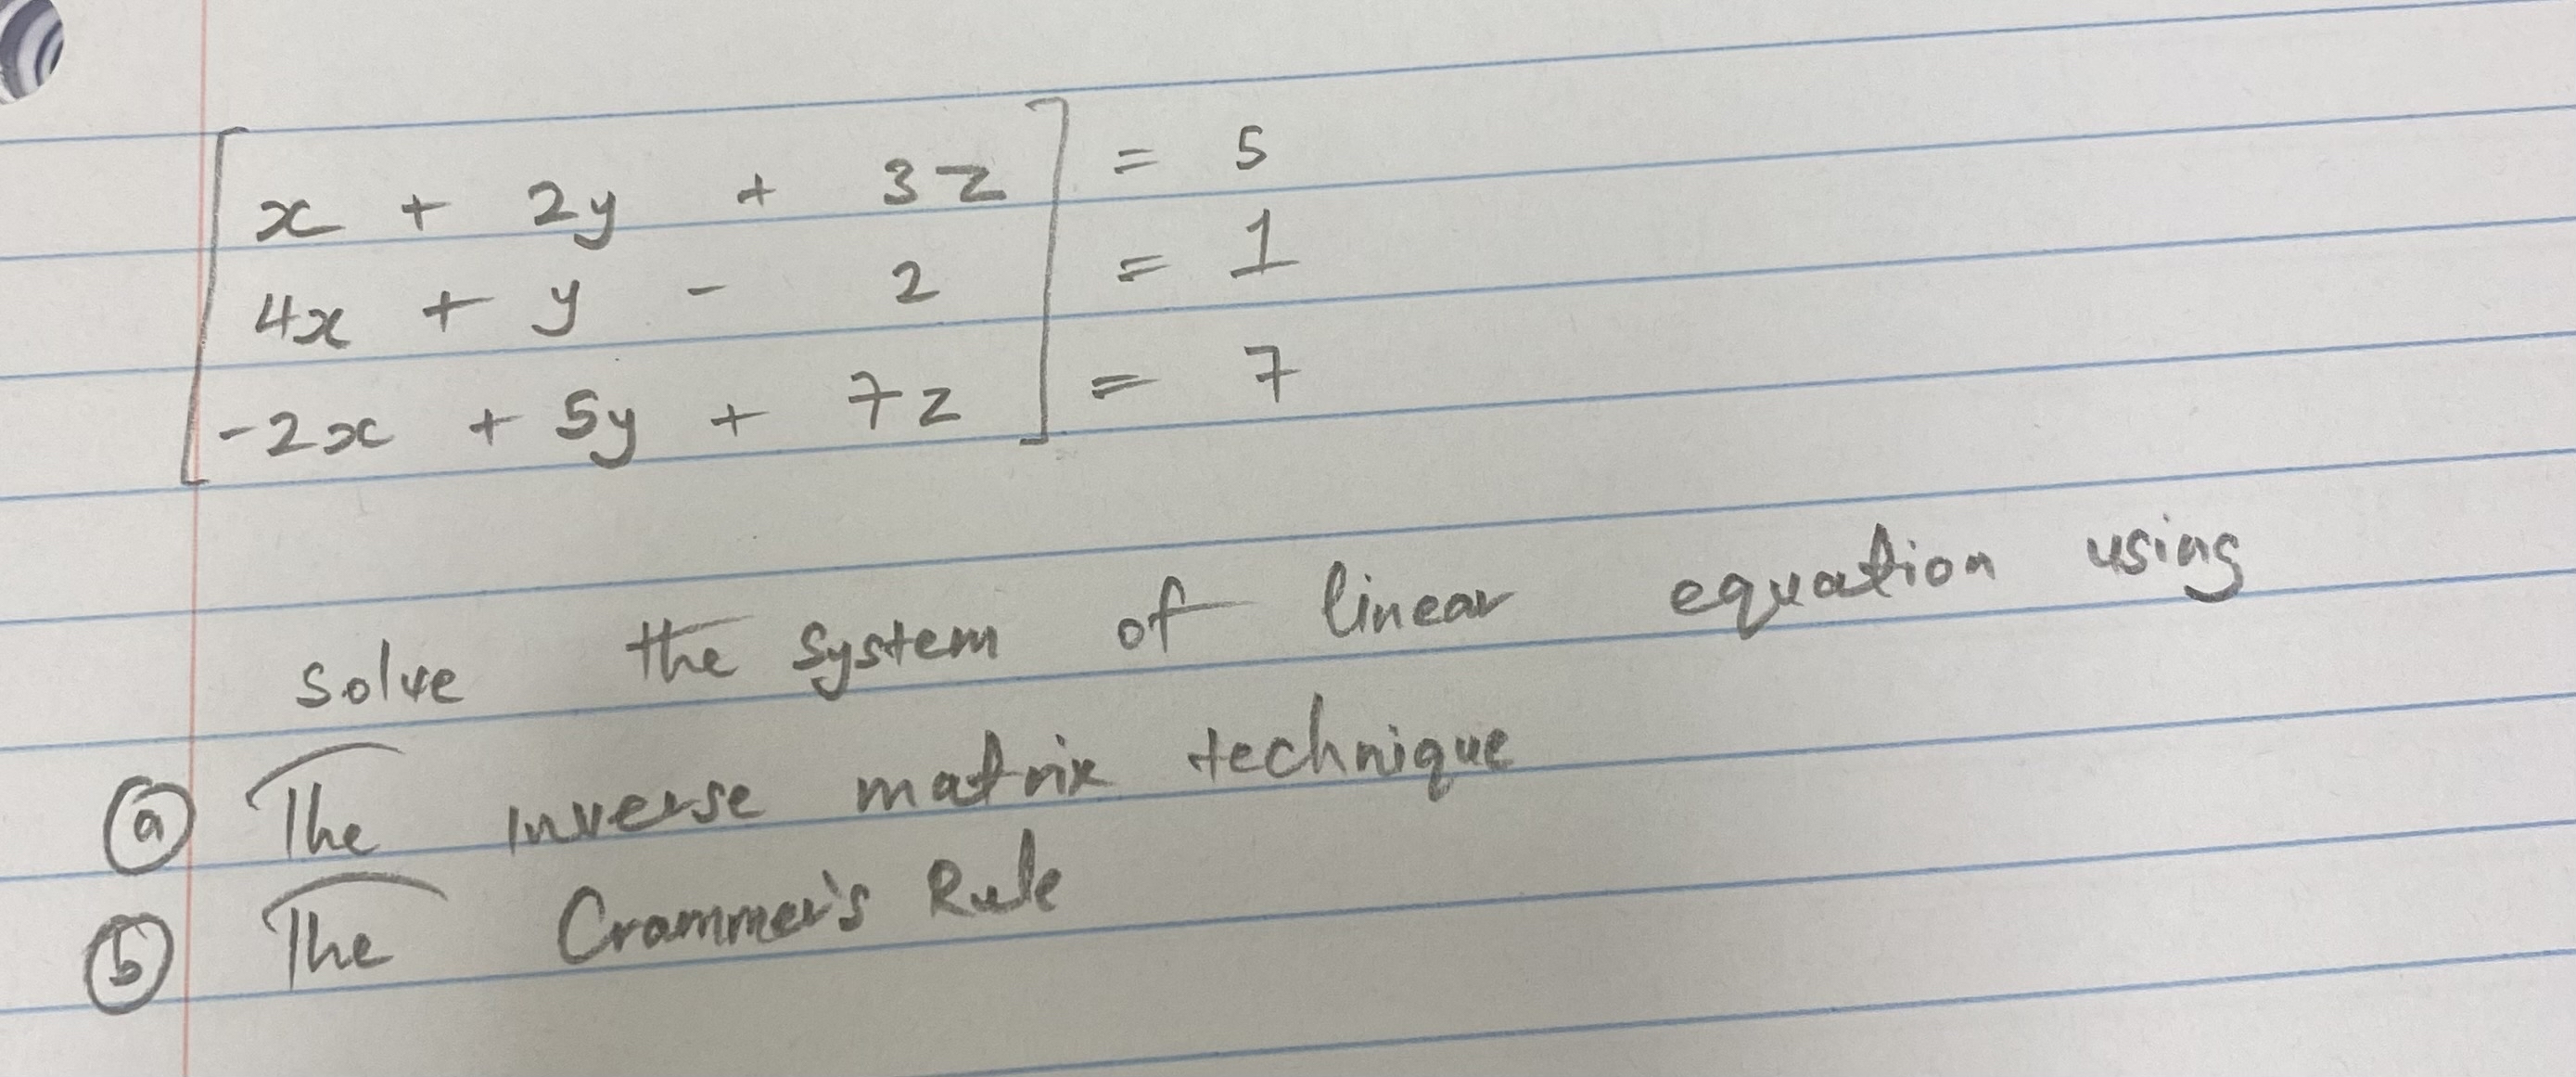 x + 2y + 3z = 5
4x + y - 2 = 1
-2x + 5y + 7z = 7
solve the system of linear equation using
(a) The inverse matrix technique
(b) The Crammer's Rule